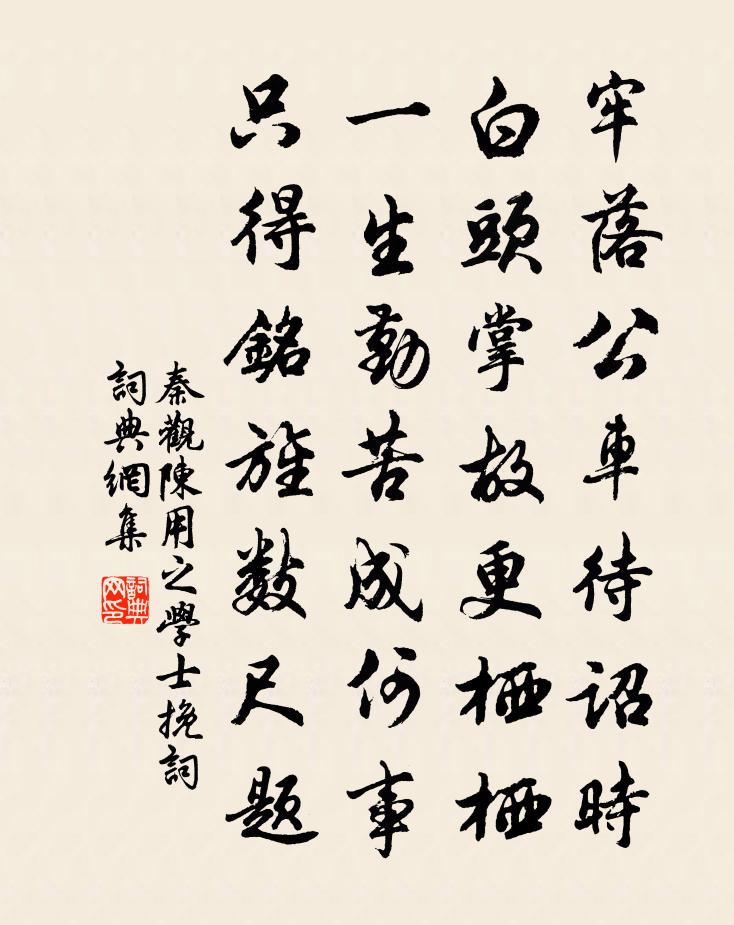 牢落公車待詔時
白頭掌故更栖栖
一生勤苦成何事
只得銘旌數尺題
秦觀陳用之學士挽詞
詞典網集
詞典網印